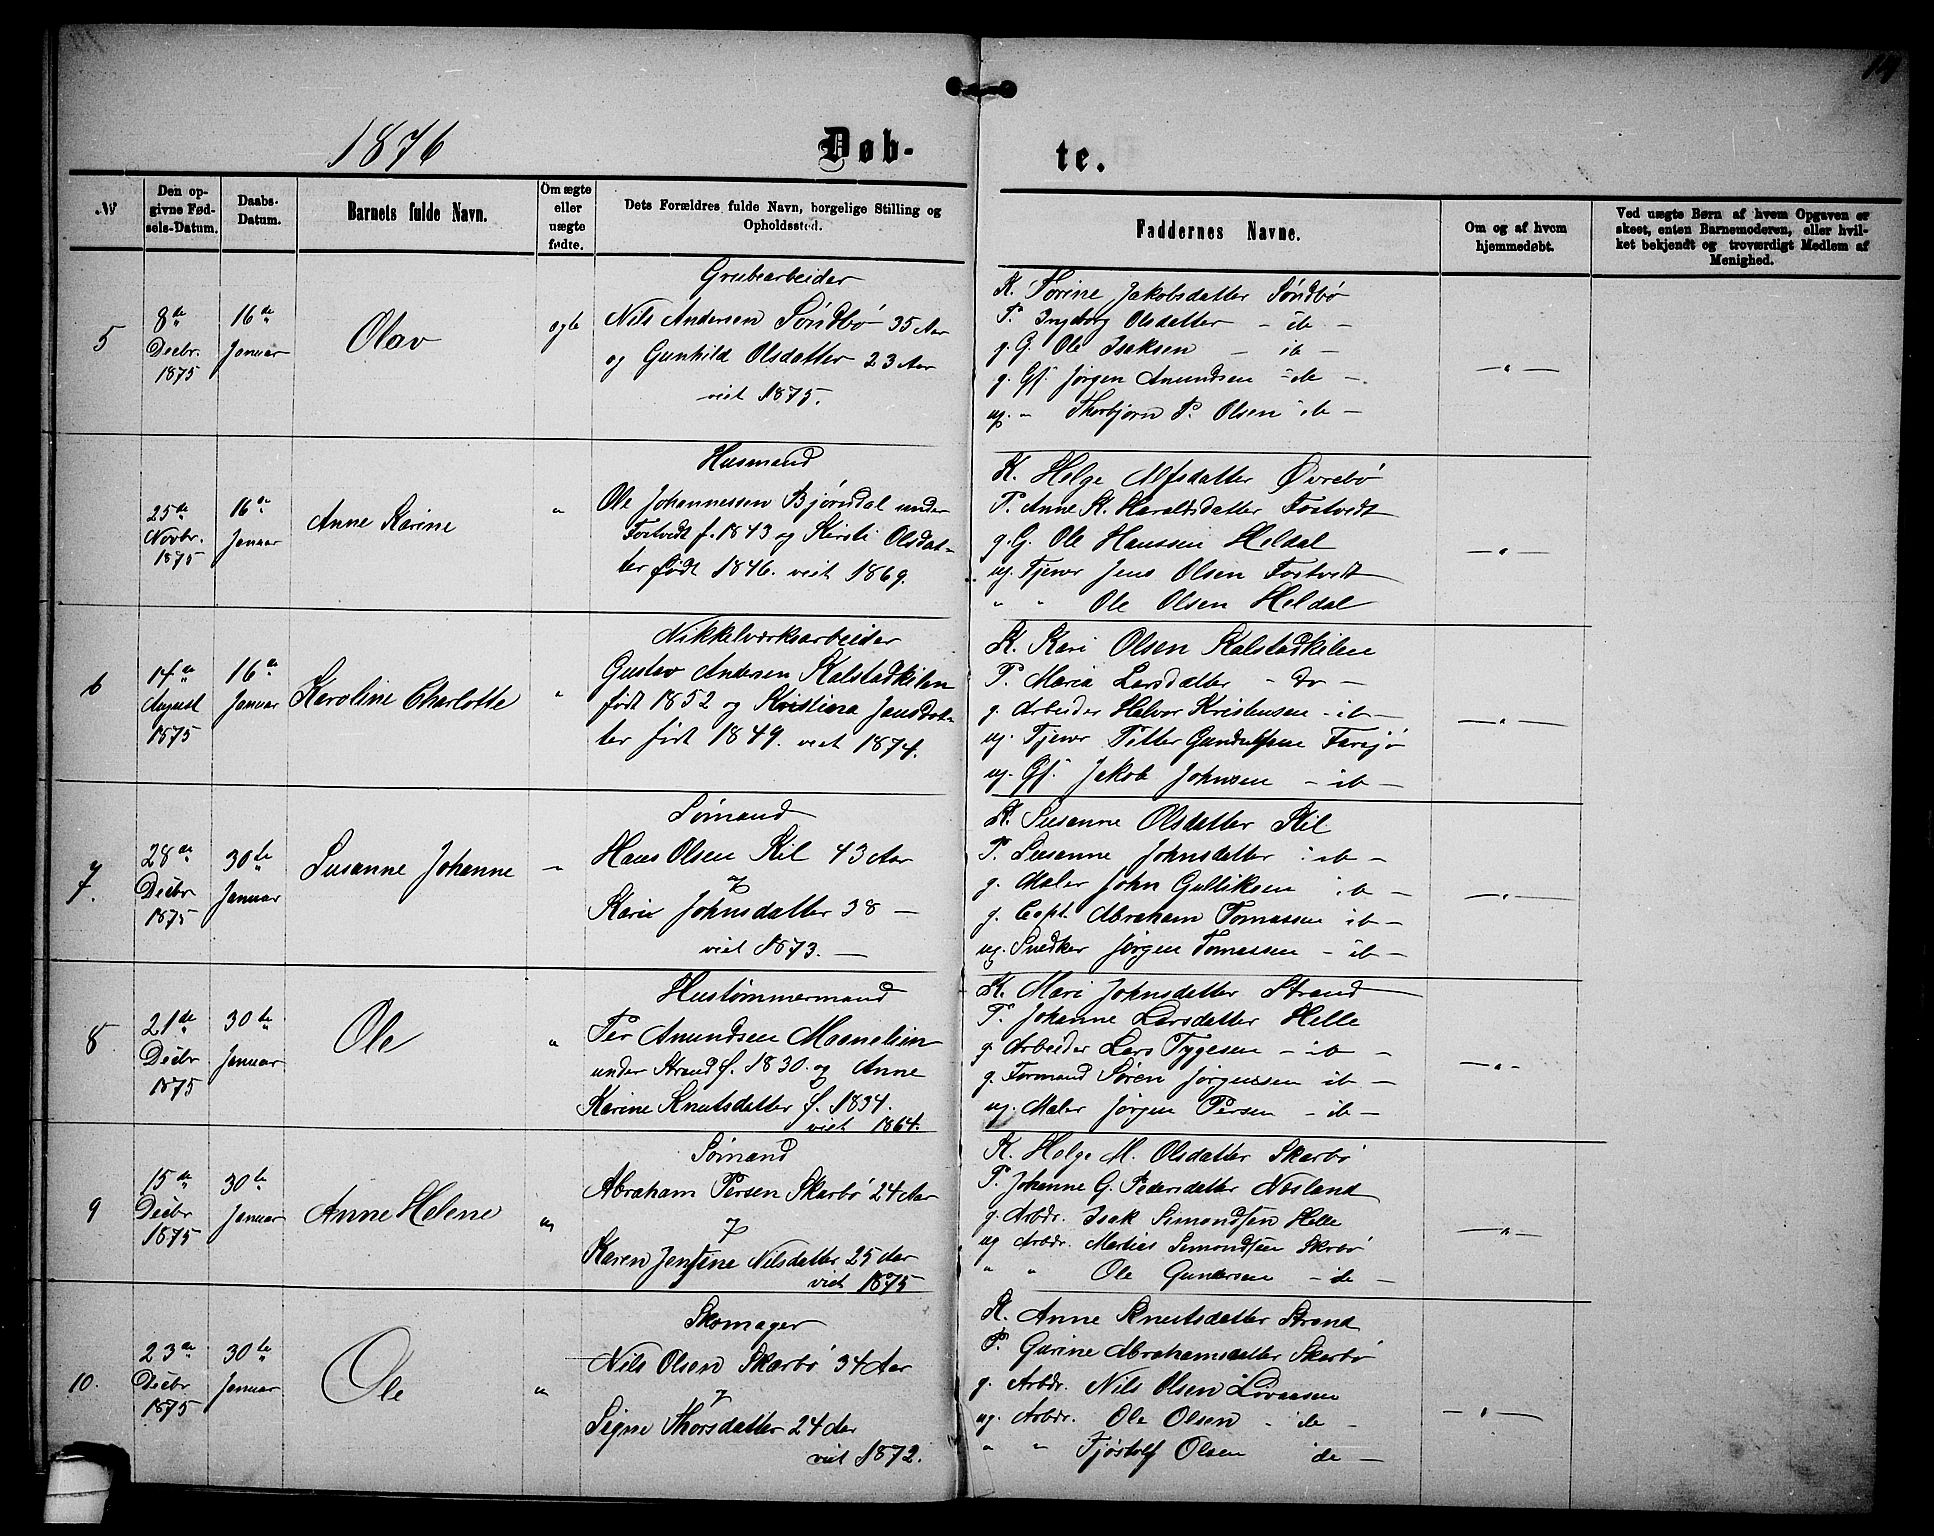 14
1876
Døb-
te.
№
Den op-
givne Fød-
sels-Datum.
Daabs-
Datum.
Barnets fulde Navn.
Om ægte
eller
uægte
fødte.
Dets Forældres fulde Navn, borgelige Stilling og
Opholdssted.
Faddernes Navne.
Om og af hvem
hjemmedøbt.
Ved uægte Børn af hvem Opgaven er
skeet, enten Barnemoderen, eller hvil-
ket bekjendt og troværdigt Medlem af
Menighed.
5
8de
Decbr.
1875
16de
Januar
Olav
ægte
Grubearbeider
Nils Andersen Söndbö 35 Aar
og Gunhild Olsdatter 23 Aar
viet 1875.
K. Torine Jakobsdatter Söndbö
P. Ingeborg Olsdatter - ib -
g. G. Ole Isaksen - ib -
g. Gf. Jørgen Amundsen - de -
ug. " Thorbjørn P. Olsen ib -
- " -
25de
Novbr.
1875
16de
Januar
Anne Karine
"
Husmand
Ole Johannessen Bjørndal under
Fostvedt f. 1843 og Kirsti Olsdat-
ter født 1846. viet 1869.
K. Helge Alfsdatter Øvrebö
P. Anne K. Haraldsdatter Fostvedt
g. G. Ole Hanssen Heldal
ug. Tjener Jens Olsen Fostvedt
" " Ole Olsen Heldal
- " -
6
14de
August
1875
16de
Januar
Karoline Charlotte
"
Nikkelværksarbeider
Gustav Andersen Kalstadkilen
født 1852 og Kristina Jansdat-
ter født 1849. viet 1874.
K. Kari Olsen Kalstadkilen
P. Maria Larsdatter - do -
g. Arbeider Halvor Kristensen - ib -
ug. Tjener Petter Farsjø
ug. Gf. Jakob Johnsen - ib -
- " -
7.
28de
Decbr
1875
30te
Januar
Susanne Johanne
"
Sømand
Hans Olsen Kil 43 Aar
og
Karie Johnsdatter 38 -
viet 1873. -
K. Susanne Olsdatter Kil
P. Susanne Johnsdatter ib -
g. Maler John Gulliksen ib -
g. Capt. Abraham Tomassen ib -
ug. Snedker Jørgen Tomassen - ib -
- " -
8
21de
Decbr
1875
30te
Januar
Ole
"
Hustømmermand
Per Amundsen
under Strand f. 1830. og Anne
Karine Knutsdatter f. 1834.
viet 1864.
K. Mari Johnsdatter Strand
P. Johanne Larsdatter Helle
g. Arbeider Lars Tygesen - ib -
g. Formand Søren Jørgenssen ib -
ug. Maler Jørgen Persen - ib -
- " -
9
15de
Decbr
1875
30te
Januar
Anne Helene
"
Sømand
Abraham Persen Skarbö 24 Aar
og
Karen Jensine Nilsdatter 25 Aar
viet 1875
K. Helge M. Olsdatter Skarbö
P. Johanne G. Pedersdatter Næsland
g. Arbdr. Isak Simondsen Helle
ug Arbdr. Mathias Simondsen Skrbö
" " Ole Gundersen - de -
- " -
10.
23de
Decbr
1875
30te
Januar
Ole
"
Skomager
Nils Olsen Skarbö 34 Aar
og
Signe Thorsdatter 24 Aar
viet 1872.
K. Anne Knutsdatter Strand
P. Gurine Abrahamsdatter Skarbö
g. Arbdr. Nils Olsen Lövaasen
ug. Arbdr. Ole Olsen - de -
" " Tjöstolf Olsen de -
- " -